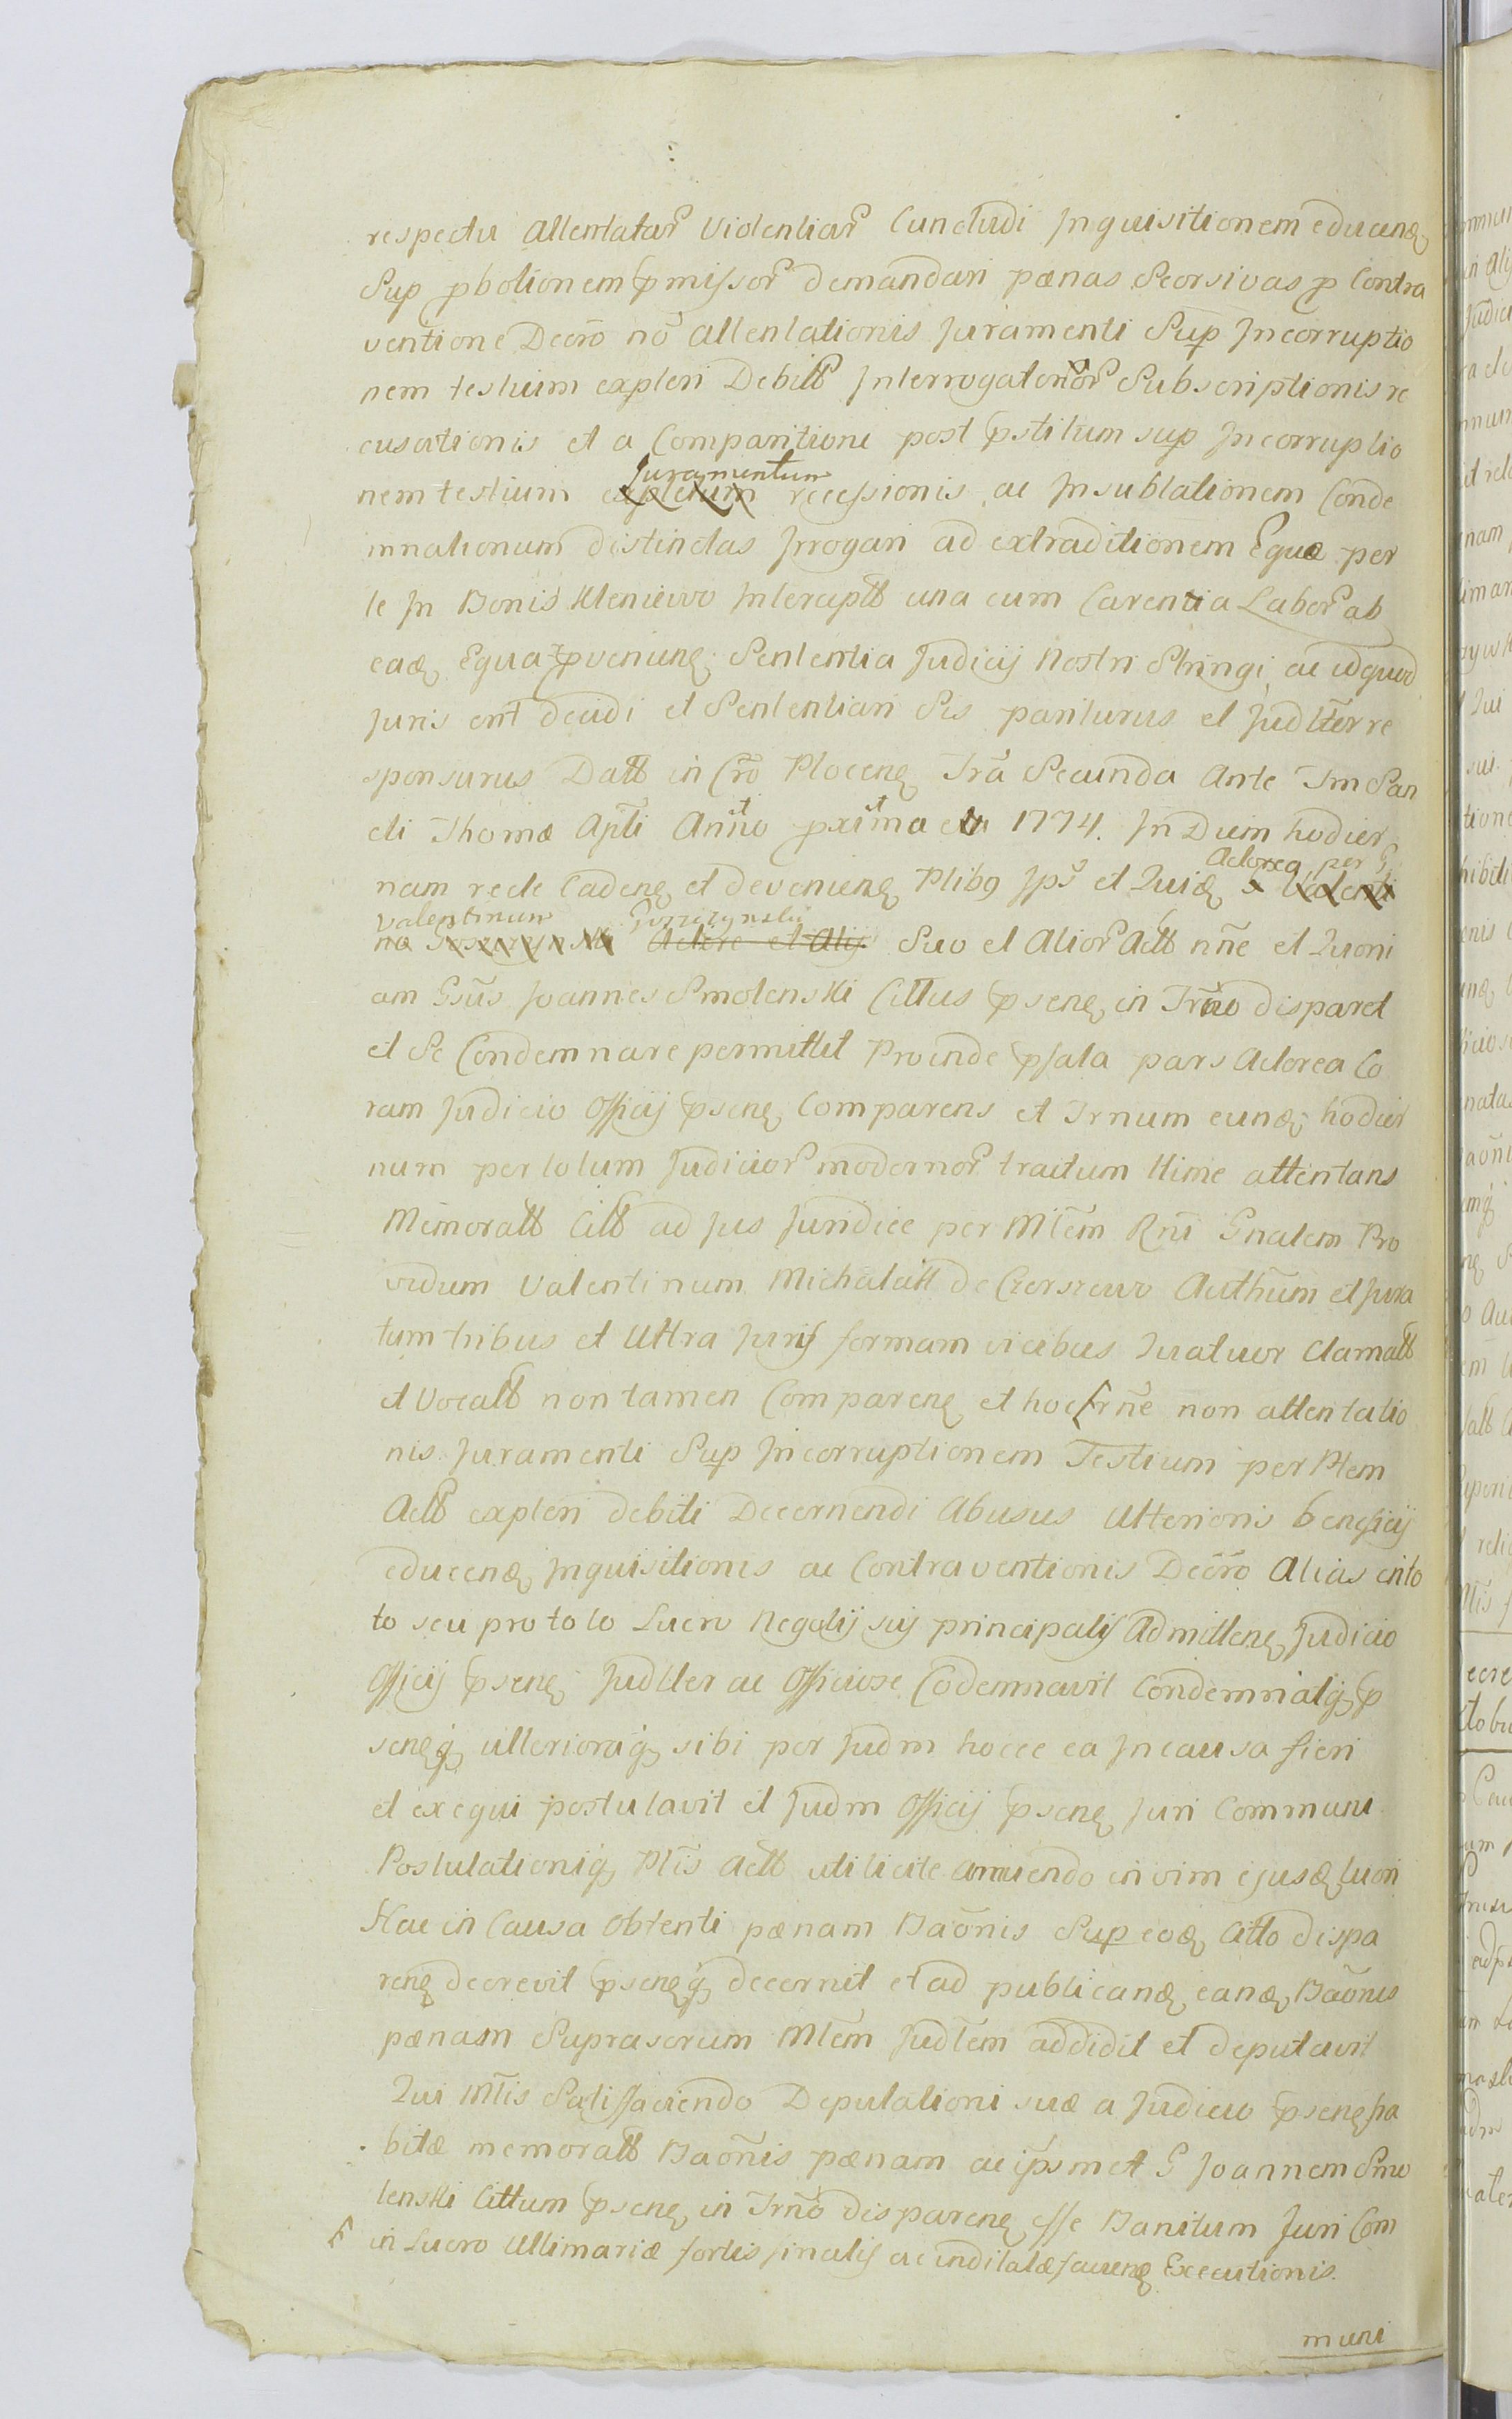 respectu Attentatar Violentiar Concludi Inquisitionem educend
Sup pbotionem pmissor demandari pænas Seorsivas p Contra
ventione Decro no attentationis Juramenti Sup Incorruptio
nem testium expleri Debitt Interrogatorior Subscriptionis re
cusationis et a Comparitione post pstitum sup Incorruptio
Juramentum
nem testium expletum recessionis ac Insublationem Conde
mnationum distinctas Irrogari ad extraditionem Equæ per
te In Bonis Kleniewo Intercaptt una cum Carentia Labor ab
ead Equa pvenien Sententia Judicij Nostri Stringi ac idquod
Juris erit decidi et Sententiari Sis pariturus et Judlter re
sponsurus Datt in Cro Plocen Fra Secunda Ante Fm San
cti Thomæ Apli Anno pxima 1774. In Diem hodier
Actorea per G
nam recte Caden et devenien Ptibq Ips et Quid Valenti
Valentinum Goszczynski
no Goszczynski Actore et Alijs Suo et Alior Actt nne et Quoni
am Gsus Joannes Smolenski Cittus psen in Trno disparet
et Se Condemnare permittit Proinde pfata pars Actorea Co
ram Judicio Officij psen Comparens et Trnum eund hodier
num per totum Judicior modernor tractum Ntime attentans
Memoratt Citt ad Jus Juridice per Mtem Rni Gnalem Pro
vidum Valentinum Michalak de Czerszewo Authum et Jura
tum tribus et Ultra Juris formam vicibus Quatuor Clamatt
et Vocatt non tamen Comparen et hoc rne non attentatio
nis Juramenti Sup Incorruptionem Testium per Ptem
Actt expleri debiti Decernendi Abusus Ulterioris beneficij
educend Inquisitionis ac Contraventionis Decro Alias in to
to seu pro toto Lucro Negotij sui principalis Admitten Judicio
Officij psen Judlter ac Officiose Codemnavit Condemnatq p
senq ulterioraq sibi per Judm hocce ea In causa fieri
et exequi postulavit et Judm Officij psen Juri Communi
Postulationiq Ptis Actt uti licite annuendo in vim ejusd lucri
Hac in Causa Obtenti pænam Baonis Sup eod Citto dispa
ren decrevit psenq decernit et ad publicand eand Baonis
pænam Suprascrum Mtem Judlem addidit et deputavit
Qui Mtis Satisfaciendo Deputationi suæ a Judicio psen ha
bitæ memoratt Baonis pænam ac ipsmet G Joannem Smo
lenski Cittum psen in Trno disparen esse Banitum Juri Com
in Lucro Ultimariæ fortis finalis ac indilatæ faciend Executionis.
muni